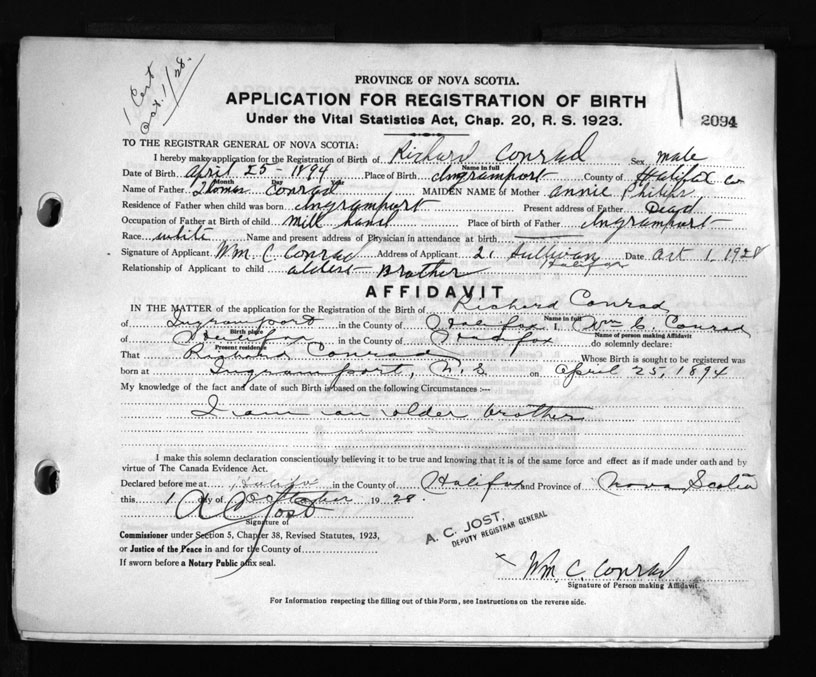 1 Cert
Oct. 1/28.
PROVINCE OF NOVA SCOTIA.
APPLICATION FOR REGISTRATION OF BIRTH
Under the Vital Statistics Act, Chap. 20, R. S. 1923.
2094
TO THE REGISTRAR GENERAL OF NOVA SCOTIA:
I hereby make application for the Registration of Birth of Richard Conrad Sex male
Name in full
Date of Birth April 25 - 1894 Place of Birth Ingramport County of Halifax Co
Month Day Date
Name of Father Thomas Conrad MAIDEN NAME of Mother Annie Philips
Residence of Father when child was born Ingramport Present address of Father Dead
Occupation of Father at Birth of child mill hand Place of birth of Father Ingramport
Race white Name and present address of Physician in attendance at birth
Signature of Applicant Wm. C. Conrad Address of Applicant 21 Sullivan Halifax Date Oct 1, 1928
Relationship of Applicant to child oldest Brother
AFFIDAVIT
IN THE MATTER of the application for the Registration of Birth of Richard Conrad
Name in full
of Ingramport in the County of Halifax I, Wm C. Conrad
Birth place Name of person making Affidavit
of Halifax in the County of Halifax do solemnly declare:
Present residence
That Richard Conrad Whose Birth is sought to be registered was
born at Ingramport, N.S. on April 25, 1894
My knowledge of the fact and date of such Birth is based on the following Circumstances :—
I am an older brother
I make this solemn declaration conscientiously believing it to be true and knowing that it is of the same force and effect as if made under oath and by
virtue of The Canada Evidence Act.
Declared before me at Halifax in the County of Halifax and Province of Nova Scotia
this 1 day of October 1928.
A C Jost
Signature of
A. C. JOST,
DEPUTY REGISTRAR GENERAL
Commissioner under Section 5, Chapter 38, Revised Statutes, 1923,
or Justice of the Peace in and for the County of
If sworn before a Notary Public affix seal.
x Wm. C. Conrad
Signature of Person making Affidavit.
For Information respecting the filling out of this Form, see Instructions on the reverse side.